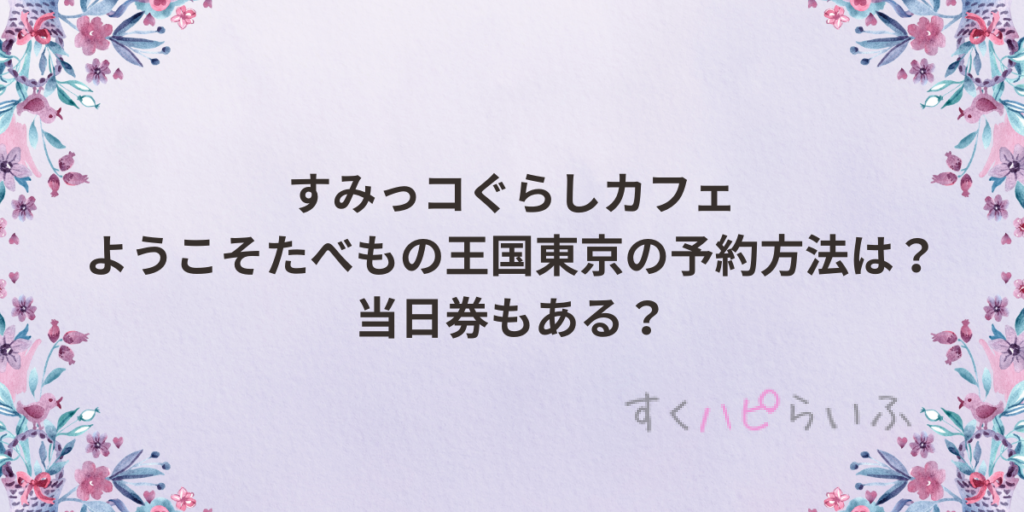 すみっコぐらしカフェ
ようこそたべもの王国東京の予約方法は？
当日券もある？
すくハピらいふ